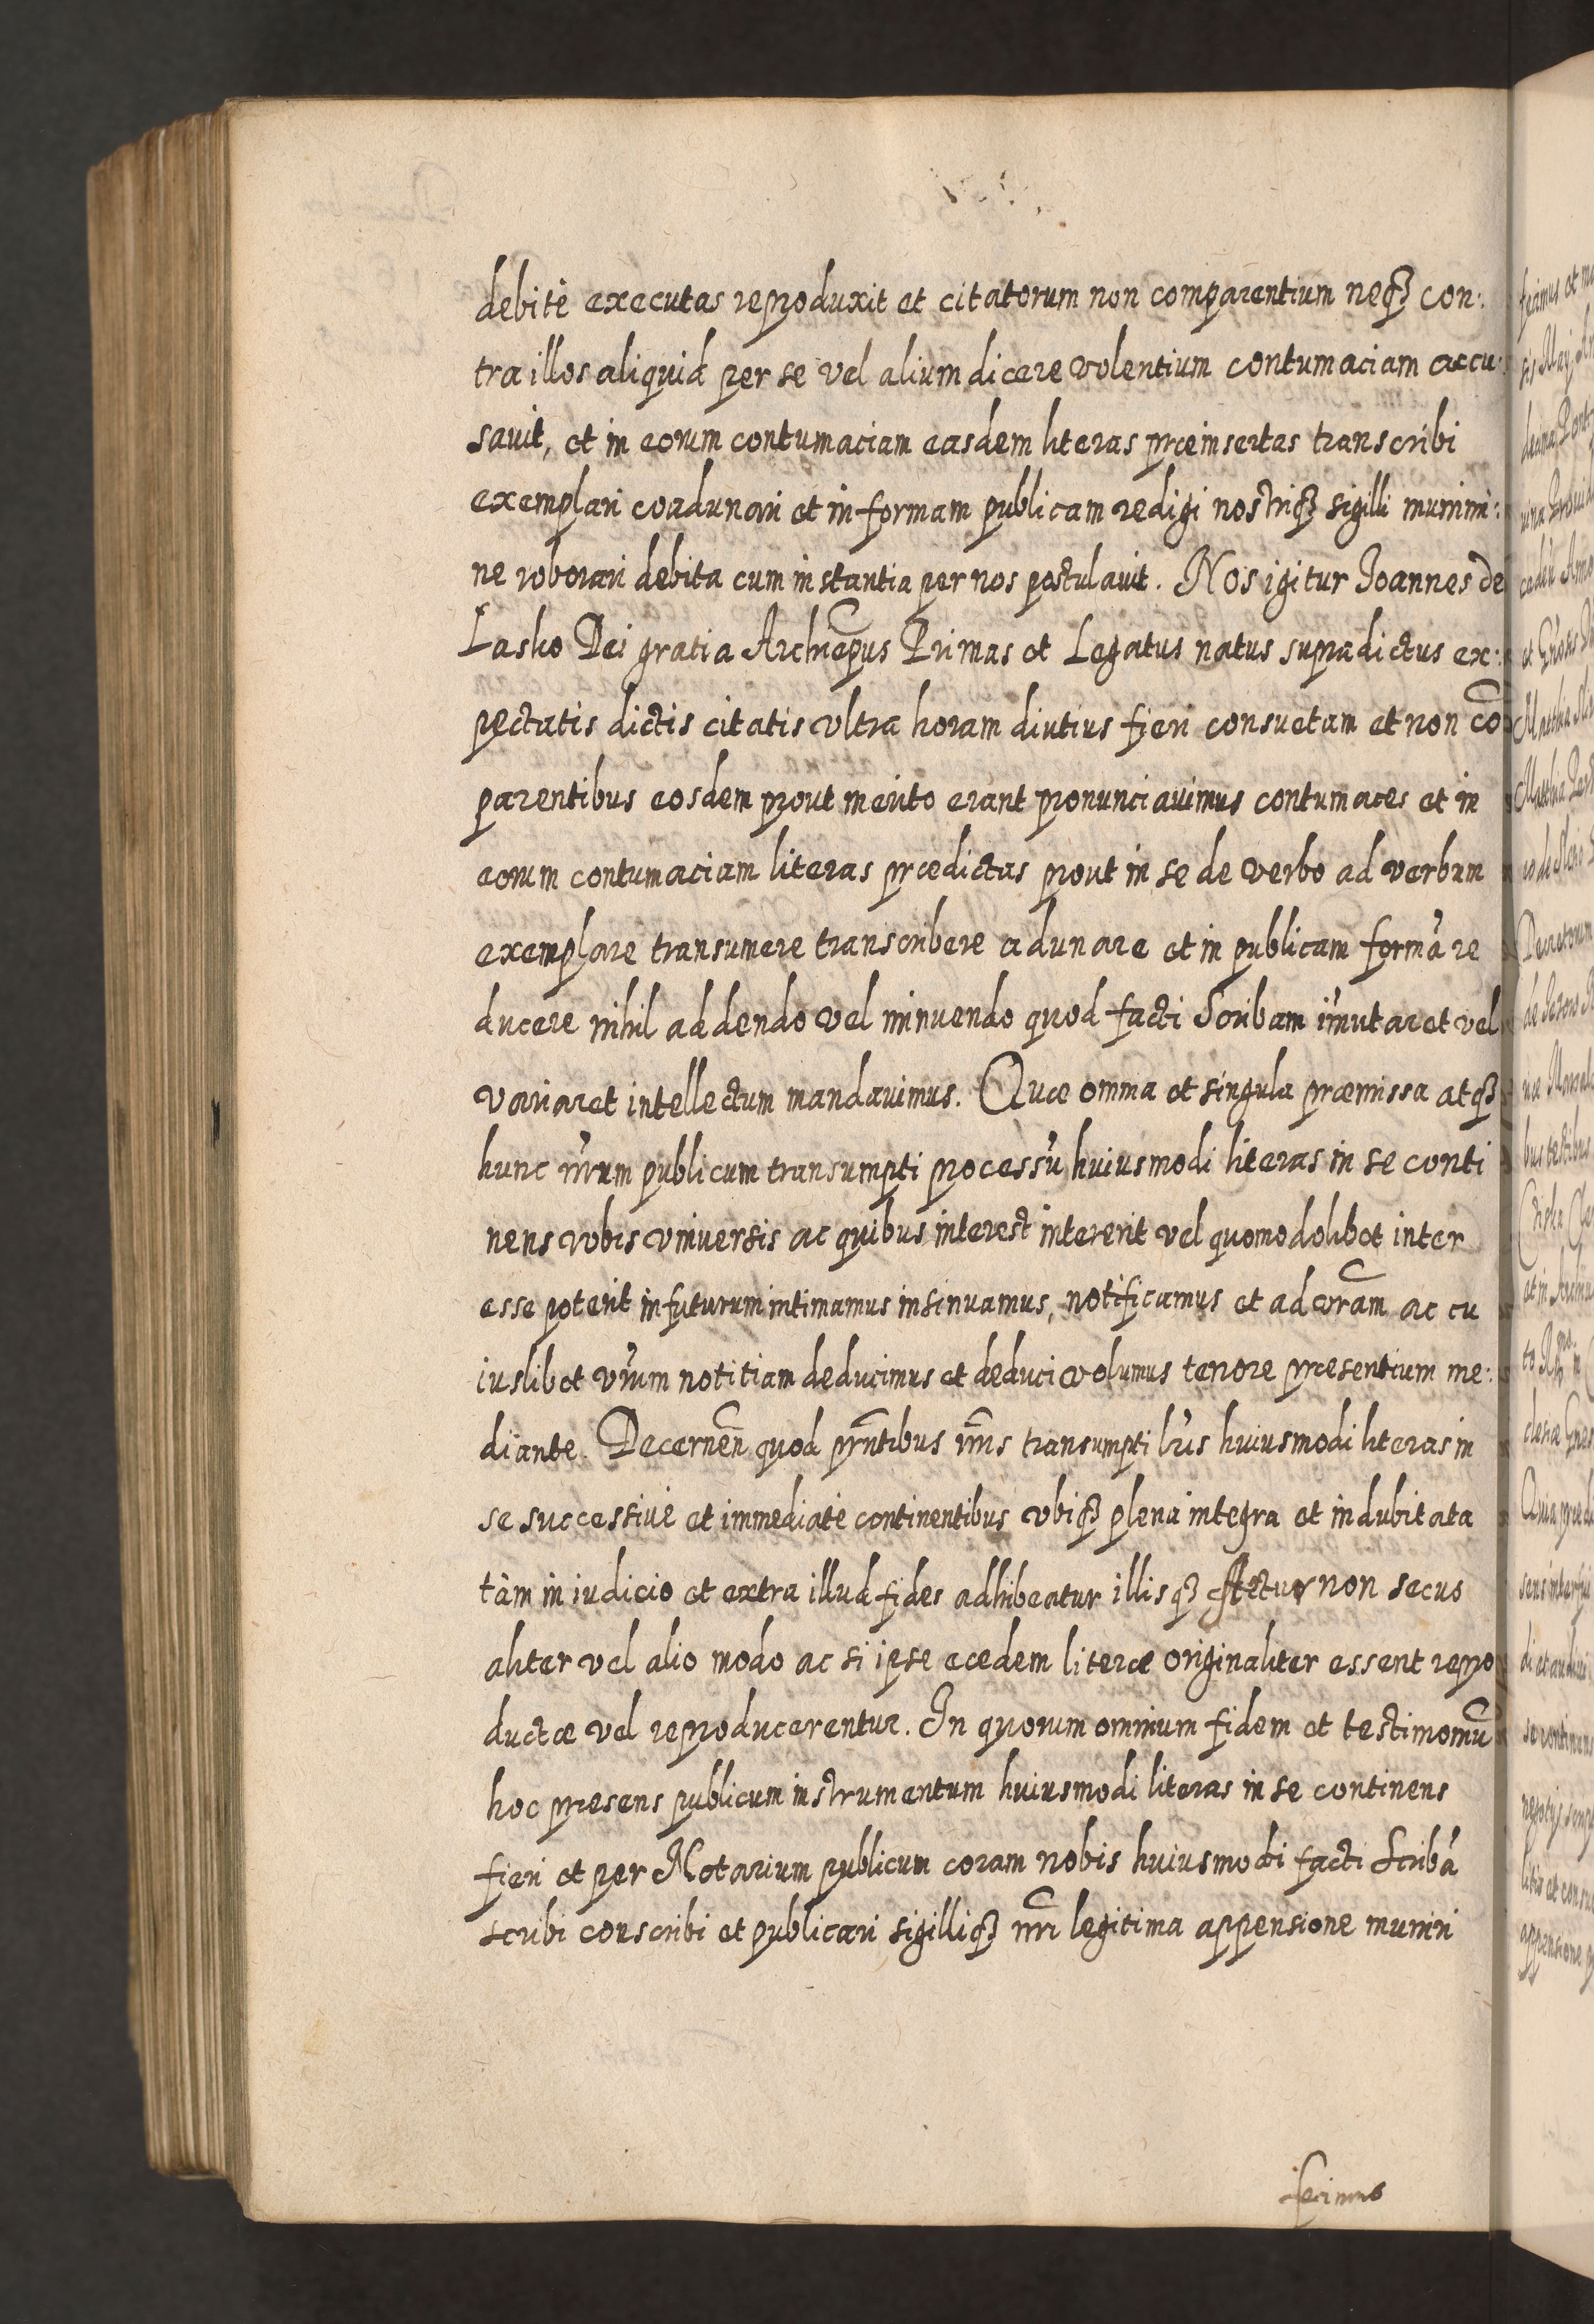 debitè executas reproduxit et citatorum non comparentium neqꝫ con:
tra illos aliquid per se vel alium dicere volentium contumaciam accu:
sauit, et in eorum contumaciam easdem literas præinsertas transcribi
exemplari coadunari et in formam publicam redigi nostriqꝫ sigilli munimi:
ne roborari debita cum instantia per nos postulauit. Nos igitur Joannes de
Lasko Dei gratia Archiepus Primas et Legatus natus supradictus ex:
pectatis dictis citatis vltra horam diutius fieri consuetam et non cō
parentibus eosdem prout merito erant pronunciauimus contumaces et in
eorum contumaciam literas prædictas prout in se de verbo ad verbum
exemplare transumere transcribere adunare et in publicam formā re
ducere nihil addendo vel minuendo quod facti Scribam im̄utaret vel
variaret intellectum mandauimus. Quæ omnia et singula præmissa atqꝫ
hunc nr̄um publicum transumpti processū huiusmodi literas in se conti
nens vobis vniuersis ac quibus interest intererit vel quomodolibet inter
esse poterit in futurum intimamus insinuamus, notificamus et ad vr̄am ac cu
iuslibet vr̄um notitiam deducimus et deduci volumus tenore præsentium me:
diante. Decernen̄ quod pn̄tibus nr̄is transumpti lr̄is huiusmodi literas in
se successiuè et immediatè continentibus vbiqꝫ plena integra et indubitata
tàm in iudicio et extra illud fides adhibeatur illisqꝫ stetur non secus
aliter vel alio modo ac si ipse eædem literæ originaliter essent repro
ductæ vel reproducerentur. In quorum omnium fidem et testimoniū
hoc præsens publicum instrumentum huiusmodi literas in se continens
fieri et per Notarium publicum coram nobis huiusmodi facti Scribā
scribi conscribi et publicari sigilliqꝫ nr̄i legitima appensione muniri
fecimus